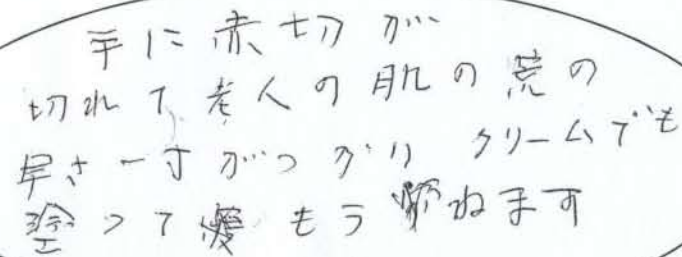 手に赤切が
切れて老人の肌の荒の
早さ一寸がっかり クリームでも
塗って もう ねます